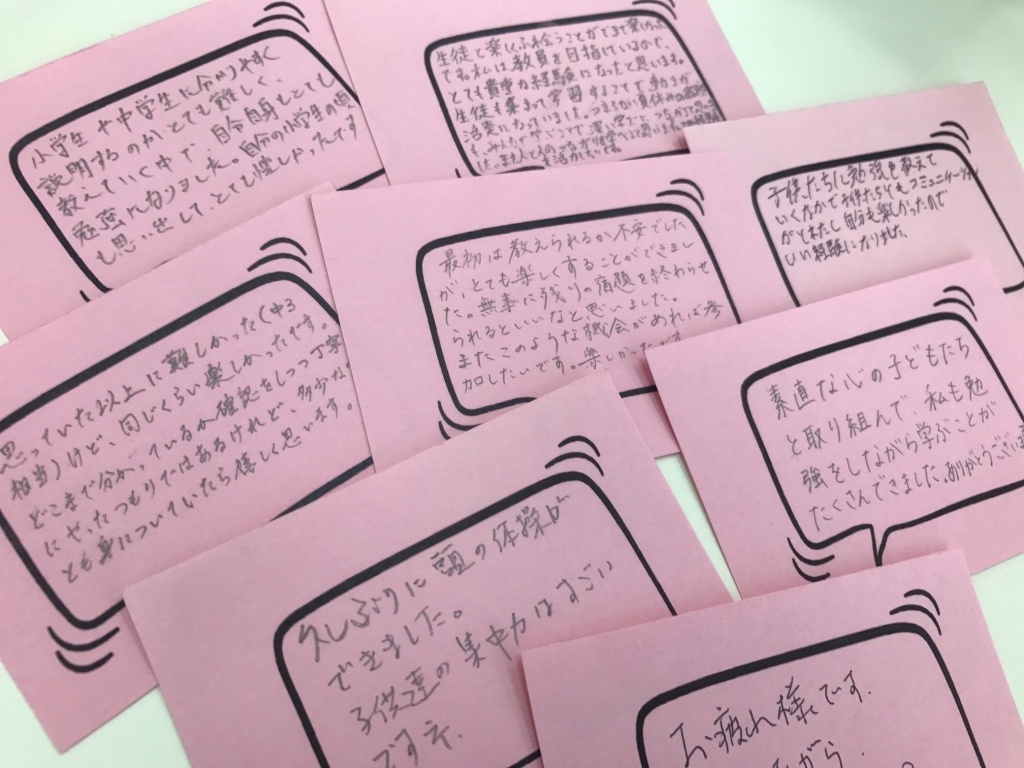 小学生や中学生に分かりやすく
説明するのがとても難しく、
教えていく中で、自分自身もとても
勉強になりました。自分の小学生の頃
も思い出して、とても懐しかったです
生徒と楽しくふれ合うことができて楽しかった
です。私は教員を目指しているので、
とても貴重な経験になったと思います。
生徒も集まって学習することで
活
子供たちに勉強を教えて
いくなかで子供たちともコミュニケーション
がとれたし自分も楽しかったので
しい経験になりました。
最初は教えられるか不安でした
が、とても楽しくすることができまし
た。無事に残りの宿題を終わらせ
られるといいなと思いました。
またこのような機会があれば参
加したいです。楽しかった
思っていた以上に難しかった(中3
担当)けど、同じくらい楽しかったです。
どこまで分かっているか確認をしつつ丁寧
にやったつもりではあるけれど、多少
とも身についていたら嬉しく思います。
素直な心の子どもたち
と取り組んで、私も勉
強をしながら学ぶことが
たくさんできました。ありがとうござい
久しぶりに頭の体操が
できました。
子供達の集中力はすごい
ですネ.
お疲れ様です.
ながら